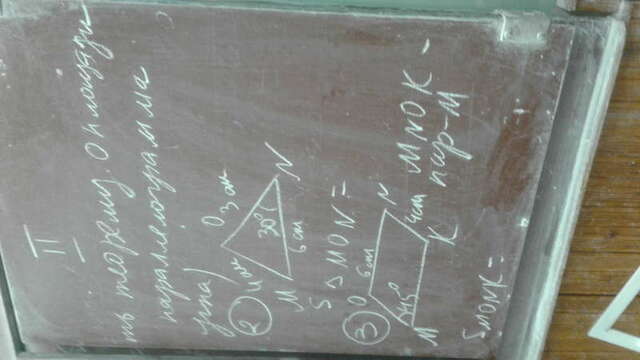 II
ть теорему. О площади
параллелограмма
угла)
② 4 см O 3 см
30°
M 6 см N
S △MON =
③ O 6 см N
45° 4см
M K
MNOK -
пар-м
SMONK =